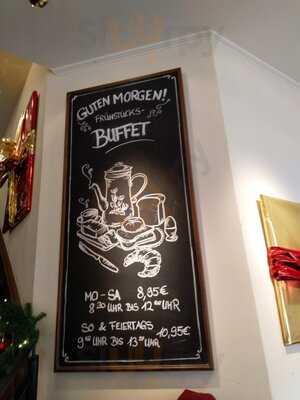 GUTEN MORGEN!
FRÜHSTÜCKS-
BUFFET
MO - SA 8,95€
8³⁰ UHR BIS 12⁰⁰ UHR
SO & FEIERTAGS 10,95€
9⁰⁰ UHR BIS 13⁰⁰ UHR